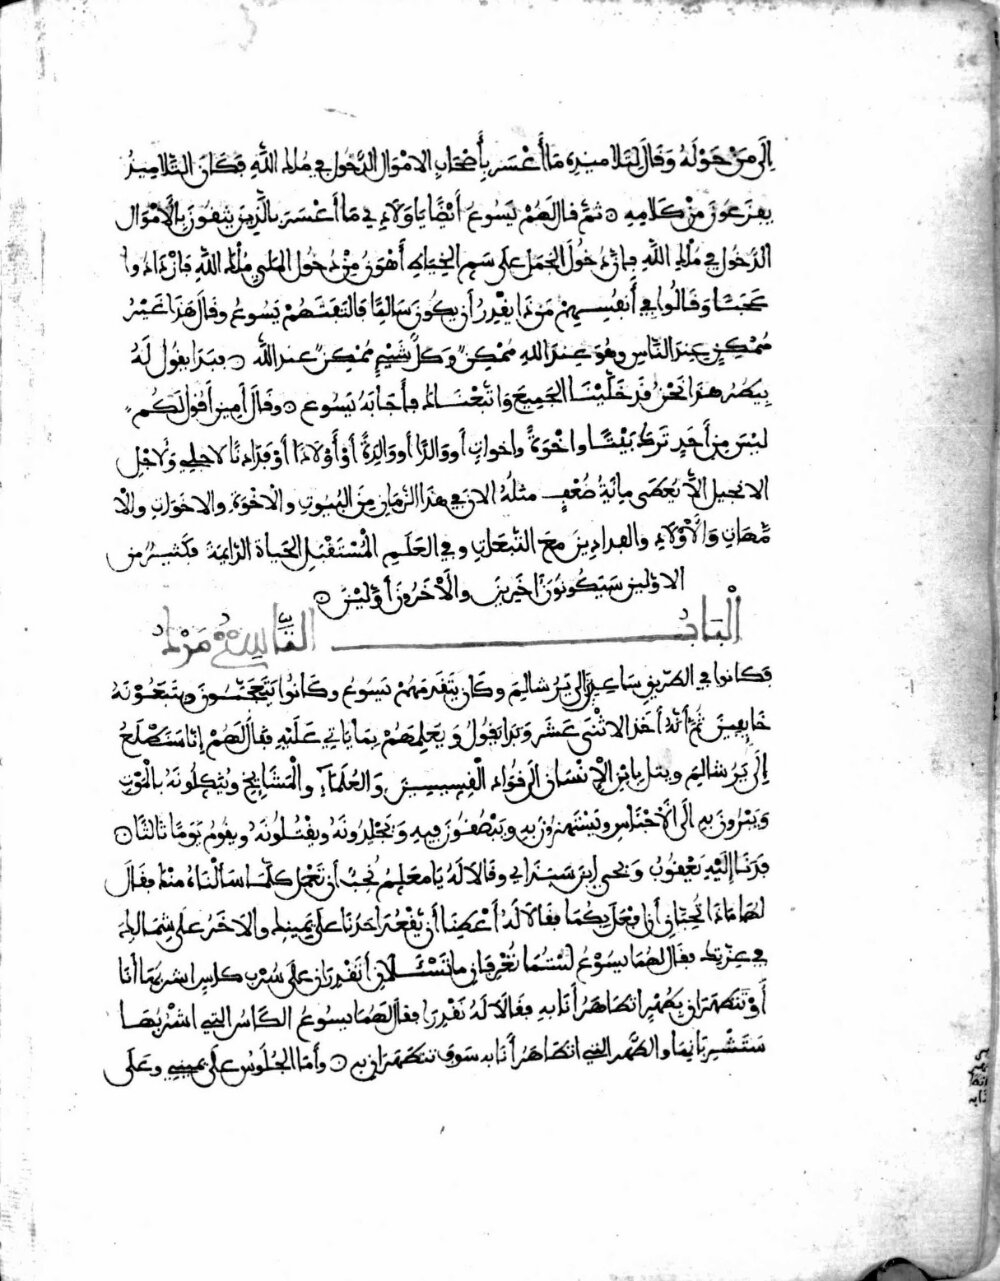 اِلَى مَنْ حَوْلَهُ وَقَالَ لِتَلَامِيذِهِ مَا أَعْسَرَ بِأَصْحَابِ الامْوَالِ الدُّخُولُ فِي مُلْكِ اللَّهِ فَكَانَ التَّلَامِيذُ
يَفْزَعُونَ مِنْ كَلَامِهِ ۝ ثُمَّ قَالَ لَهُمْ يَسُوعُ أَيْضًا يَاوَلَاءِ مَا أَعْسَرَ بِالَّذِينَ يَثِقُونَ بِالْأَمْوَالِ
الدُّخُولُ فِي مُلْكِ اللَّهِ فَإِنَّ دُخُولَ الْجَمَلِ عَلَى سَمِّ الْخِيَاطِ أَهْوَنُ مِنْ دُخُولِ الْمَلِيِّ مُلْكَ اللَّهِ فَازْدَادُوا
عَجَبًا وَقَالُوا فِي أَنْفُسِهِمْ مَنْ ذَا يَقْدِرُ أَنْ يَكُونَ سَالِمًا فَالتَفَتَهُمْ يَسُوعُ وقَالَ هَذَا غَيْرُ
مُمْكِنٍ عِنْدَ النَّاسِ وهُوَ عِنْدَ اللهِ مُمْكِنٌ وَكَلُّ شَيْءٍ مُمْكِنٌ عِندَ اللَّهِ ۝ فبَدَا يقُولُ لَهُ
بِيطْرُ هَذَا نَحْنُ قَدْ خَلَّيْنَا الجَمِيعَ وَاتَّبَعْنَاكَ فأَجَابَهُ يَسُوع ۝ وقَالَ أمِين أقُولُ لَكُم
لَيْسَ مِن أَحَدٍ تَرَكَ بَيْتًا واخْوَةً واخواتٍ أووَالدًا أووَالِدَةً أوْ أوْلَادًا أوْ فَدَادِنًا لاجلِي وَلاجْلِ
الانجيل الَّا يُعطَى مِائَةَ ضُعْفٍ مثلهُ الان فِي هذا الزَّمَانِ مِنَ البُيُوتِ والاخْوَةِ والاخوَاتِ والْا
مَّهَاتِ وَالْأوْلَاد والفدادِينَ مَعَ التَّبَعَاتِ وفِي العَالَمِ الْمُسْتَقْبِلِ الحَيَاةَ الدَّايمَةَ فَكَثِيرٌ من
الاوَّلينَ سَيَكُونُونَ آخِرِينَ والْآخَرُونَ أوَّلِينَ ۝
الْبَابُ الثَّاسِعُ مَرْكُ
فكَانوا فِي الطرِيقِ سَاعِينَ إلَى يَرُشَالِيمَ وكَانَ يَتَقَدَّمَهُمْ يَسُوعُ وكَانُوا يَتَعَجَّبُونَ ويَتْبَعُونَهُ
خَايفِينَ ثُمَّ أنَّهُ أخَذَ الاثْنَي عَشَرَ وبَدَا يَقُولُ ويَعْلِمُهُمْ بِمَا يَاتِي عَلَيْهِ فقَالَ لَهُمْ إنَّا سَنَطْلَعُ
إلَى يَرُشَالِيمَ ويبَلَّغ بِابْنِ الْإنْسَانِ الَى قُوَّادِ القِسِيسِينَ وَالعُلَمَاءِ والْمَشَايِخِ ويُثْكِلُونَهُ بِالْمَوْتِ
وَيَبْرُونَ بِهِ الَى الْأجْنَاسِ ويَسْتَهْزِوُنَ بِهِ ويَبْصُقُونَ فِيهِ وَيَجْلِدُونَهُ ويَقْتُلُونَهُ ويقُومُ يَومًا ثَالِثًا ۝
فدَنَا إلَيْهِ يَعْقُوبُ وَيَحيَى ابنَي سَبَذَاي وقَالَا لَهُ يَا مَعَلِّمُ نُحِبُّ أن تَعْمَلَ كلَّمَا سَألْنَاهُ مِنْكَ فقَالَ
لهُمَا مَاذَا تُحِبَّانِ أن افعَلَ بِكُمَا فقَالَا لَهُ أَعْطِنَا أنْ يَقْعُدَ أحَدُنَا عَلَى يَمِينِكَ والاخَرُ عَلَى شِمَالِكَ
فِي عِزَّتِكَ فقَالَ لهُمَا يسُوعُ لَسْتُمَا تَعْرِفَانِ مَا تَسْئَلَانِ أتَقْدِرَانِ عَلَى شُرْبِ كاسٍ اشربُهَا أنَا
أَوْ تَتَطَهَّرَانِ بِطُهْرٍ اتطَاهَرُ أنَا بِهِ فقَالَا لَهُ نَقْدِر فقَالَ لهُمَا يسُوعُ الكَاسُ الَّتِي اشْرَبُهَا
سَتَشْرَبَانِهَا والطُّهْر الذِي اتطَاهَرُ أنَا بِهِ سَوفَ تتطَهَّرَانِ بِهِ ۝ وأمَّا الجُلُوسُ عَلَى يَمِينِي وعَلَى